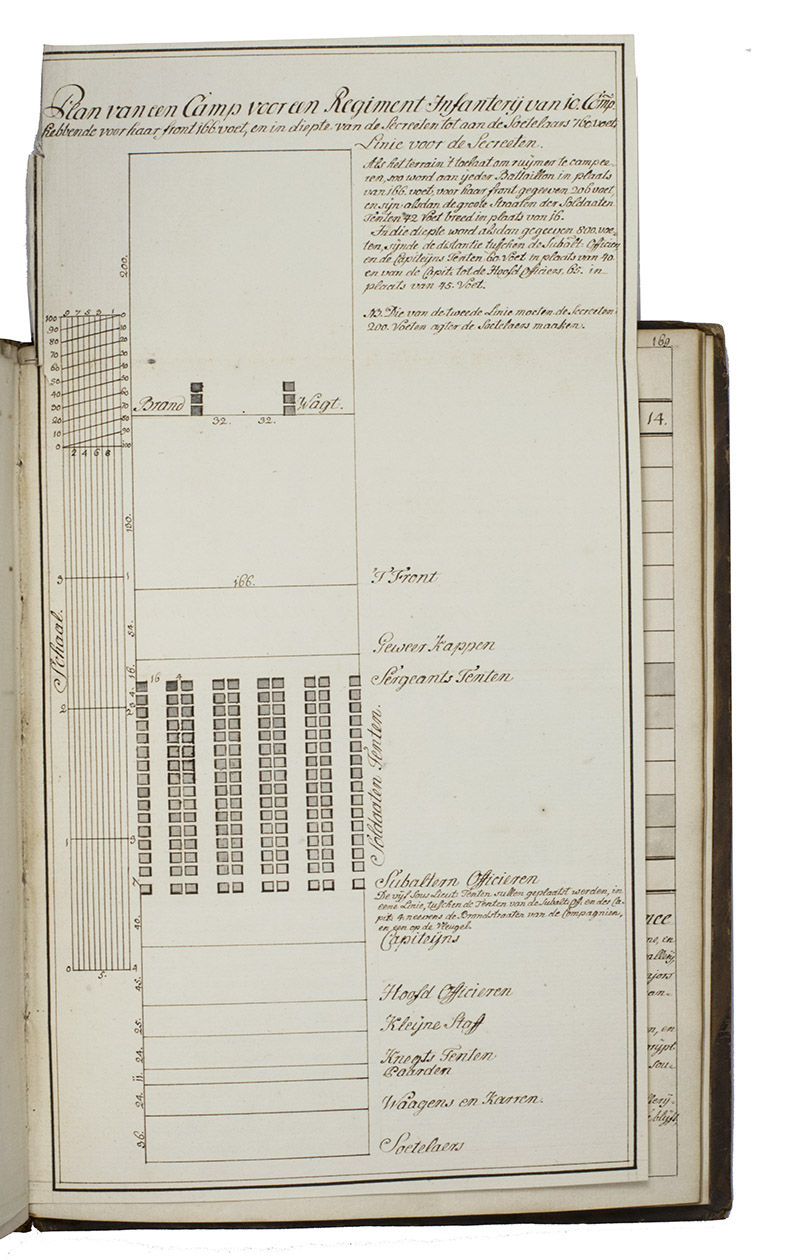 Plan van een Camp voor een Regiment Infanterij van 10. Comp.
hebbende voor haar front 166 voet, en in diepte van de Secreeten tot aan de Soetelaars 760 voet,
Linie voor de Secreeten.
Als het terrain 't toelaat om ruijmer te campee-
ren, soo word aan ijeder Battaillon in plaats
van 166. voet, voor haar front gegeeven 206 voet,
en sijn alsdan de groote Straaten der Soldaaten
Tenten 42 Voet breed in plaats van 16.
In die diepte word alsdan gegeeven 800. voe-
ten, sijnde de distantie tusschen de Subalt: Officien
en de Capiteijns Tenten 60. Voet in plaats van 40.
en van de Capit. tot de Hoofd Officiers, 65. in
plaats van 45. Voet.
NB. Die van de tweede Linie moeten de Secreeten
200. Voeten agter de Soetelaers maaken.
200.
100 9 7 5 3 1 0
90 10
80 20
70 30
60 40
50 50
40 60
30 70
20 80
10 90
0 100
2 4 6 8
Brand Wagt.
32. 32.
180.
3 1
166.
'T Front
Schaal.
54.
Geweer Kappen
16.
16 4
Sergeants Tenten
4.
2
Soldaaten Tenten.
1 3
7.
Subaltern Officieren
De vijf Sous Lieut: Tenten sullen geplaatst werden, in
eene Linie, tusschen de Tenten van de Subalt: Off: en des Ca-
pit: 4. neevens de Brandstraaten van de Compagnien,
en een op de Vleugel.
40.
Capiteijns
0 5. 4
45.
Hoofd Officieren
25.
Kleijne Staff
24.
Knegts Tenten
11.
Paarden
24.
Waagens en Karren.
36.
Soetelaers
169
14.
nee
ne, in
allerij,
ajors
an-
n, en
rijpt.
Sou-
llerij-
blijft,